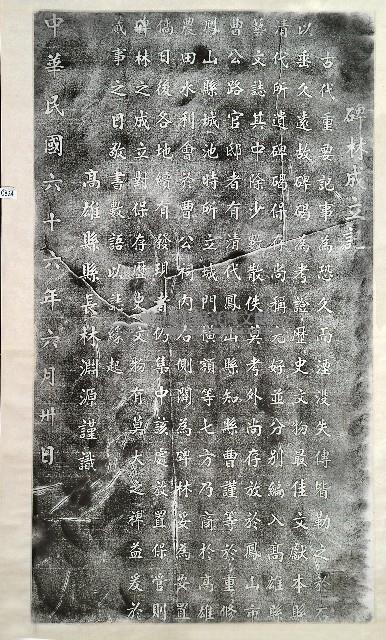 碑林成立記
古代重要記事為恐久而湮沒失傳皆勒之於石
以垂久遠故碑碣為考證歷史文物最佳文獻本縣
清代所遺碑碣保存尚稱完好並分別編入高雄縣
藝文誌其中除少數散佚莫考外尚存放於鳳山市
曹公路官邸者有清代鳳山縣知縣曹謹等於重修
鳳山縣城池時所立城門橫額等七方乃商於高雄
農田水利會於曹公祠內右側闢為碑林妥為安置
倘日後各地續有發現者仍集中該處放置保管則
碑林之成立對保存歷史文物有莫大之裨益爰於
蕆事之日敬書數語以誌緣起
高雄縣縣長林淵源謹識
中華民國六十六年六月卅日